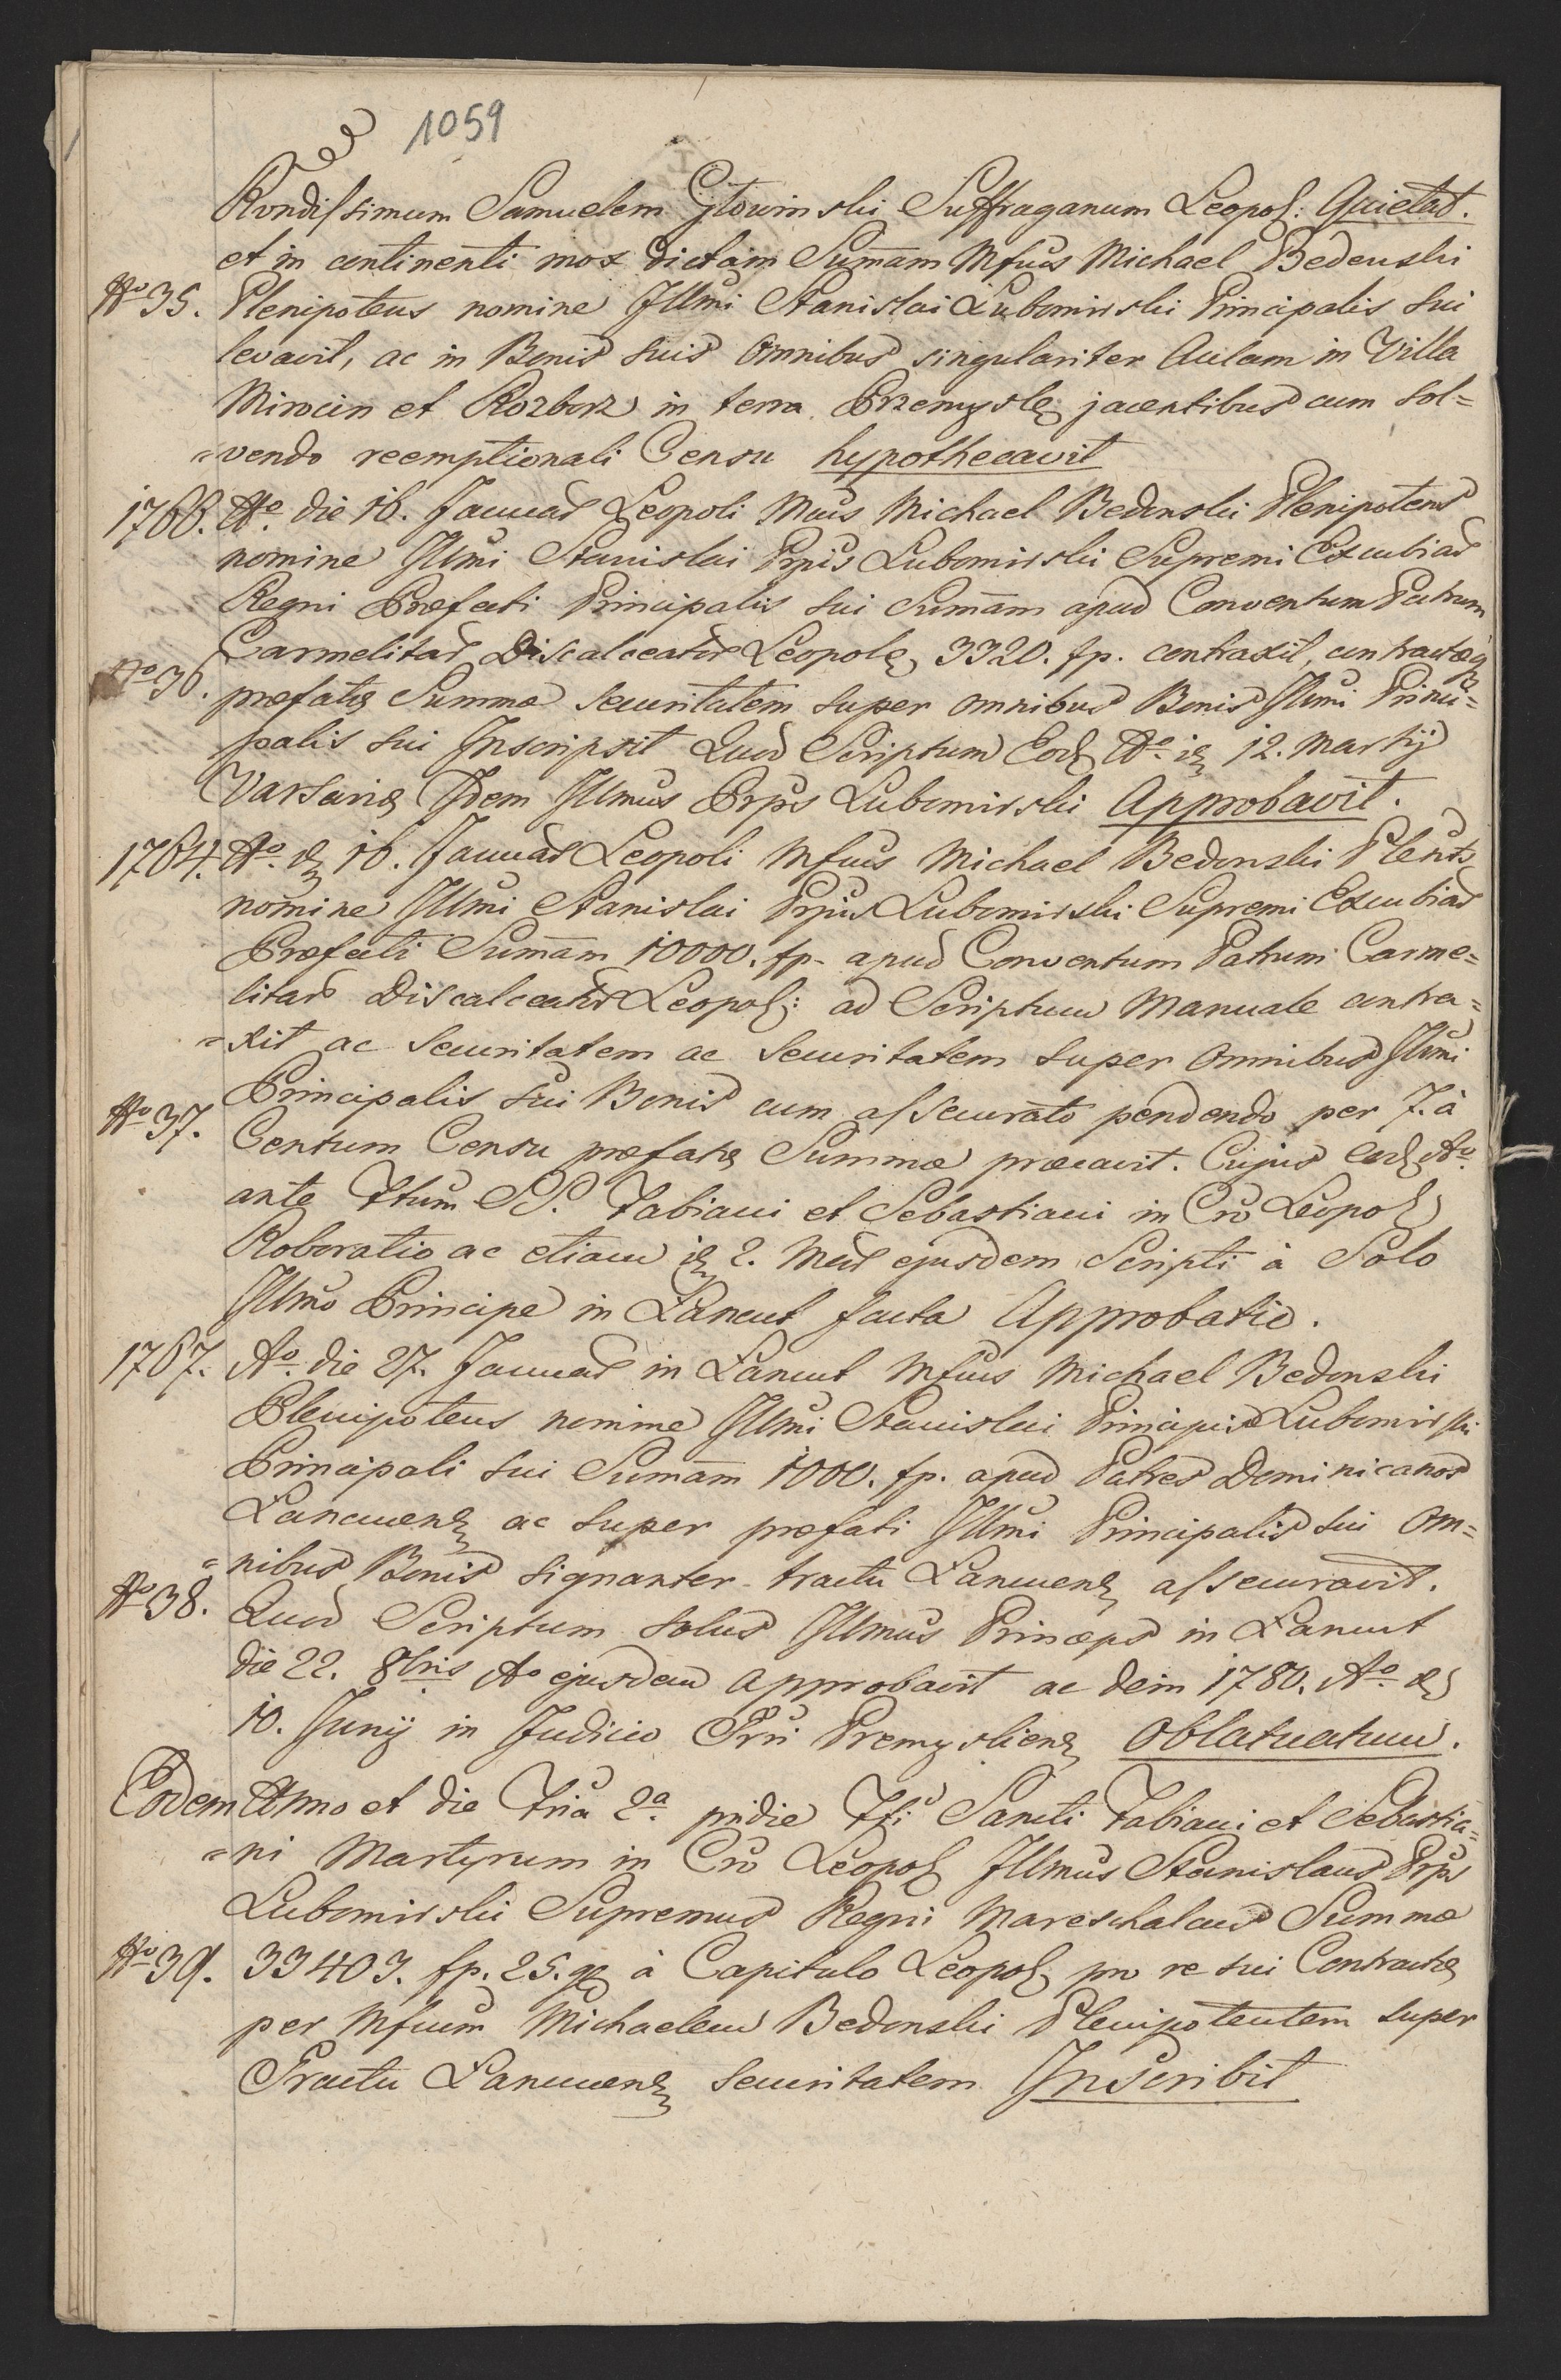 1059
Rvndissimum Samuelem Głowinski Suffraganum Leopol: Quietat.
et in continenti mox dictam Sumam Mfcus Michael Bedenski
No 35. Plenipotens nomine Illmi Stanislai Lubomirski Principalis sui
levavit, ac in Bonis suis omnibus singulariter Aulam in Villa
Mirocin et Rozborz in terra Przemysle jacentibus cum sol=
=vendo reemptionali Censu hypothecavit
1766. Ao. die 16. Januar Leopoli Mcus Michael Bedonski Plenipotens
nomine Illmi Stanislai Prpis Lubomirski Supremi Excubiar
Regni Præfecti Principalis sui Sumam apud Conventum Patrum
Carmelitar Discalceator Leopole 3320. fp. contraxit, contractæq
No 36. præfatæ Summæ securitatem super omnibus Bonis Illmi Princi=
palis sui Inscripsit Quod Scriptum Eod Ao ie 12. Martij
Varsaviæ Idem Illmus Prps Lubomirski Approbavit.
1764. Ao. d 16. Januar Leopoli Mfcus Michael Bedonski Plents
nomine Illmi Stanislai Prpis Lubomirski Supremi Excubiar
Præfecti Sumam 10000. fp. apud Conventum Patrum Carme=
litar Discalceator Leopol: ad Scriptum Manuale contra=
=xit ac Securitatem ac Securitatem super omnibus Illmi
Principalis sui Bonis cum assecurato pendendo per 7. à
No 37. Centum Censu præfatæ Summæ præcavit. Cujus Eod Ao.
ante Ftum SS. Fabiani et Sebastiani in Cro Leopol
Roboratio ac etiam ie 2. ejusdem Scripti à Solo
Illmo Principe in Łancut facta Approbatio.
1767. Ao. die 27. Januar in Łancut Mfcus Michael Bedonski
Plenipotens nomine Illmi Stanislai Principis Lubomirski
Principali sui Sumam 1000. fp. apud Patres Dominicanos
Lancuens ac super præfati Illmi Principalis sui om=
=nibus Bonis signanter tractu Lancuens assecuravit.
No 38. Quod Scriptum solus Illmus Princeps in Łancut
die 22. 8bris Ao ejusdem approbavit ac dein 1780. Ao. d
10. Junij in Judicio Premysliens Oblatuatum.
Eodem Anno et die Fria 2a. pridie Fti Sancti Fabiani et Sebastia=
=ni Martyrum in Cro Leopol Illmus Stanislaus Prps
Lubomirski Supremus Regni Mareschalcus Summæ
No 39. 33403. fp. 25. gr à Capitulo Leopol pro re sui Contractæ
per Mfcum Michaelem Bedonski Plenipotentem super
Tractu Lancuens securitatem Inscribit